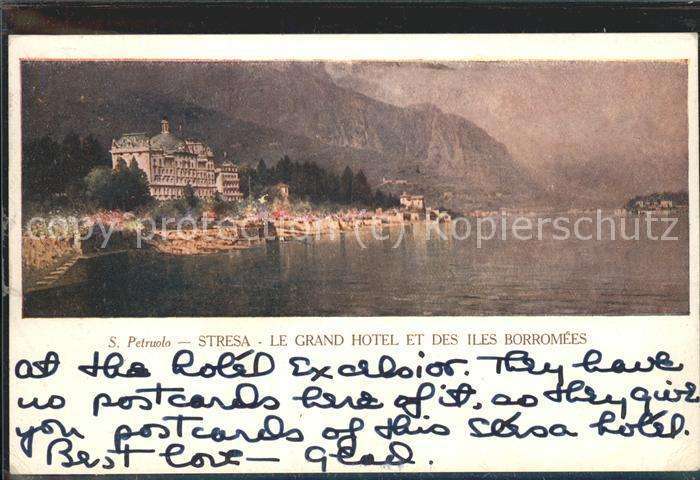 copyright (c) Kopierschutz
S. Petruolo — STRESA - LE GRAND HOTEL ET DES ILES BORROMÉES
at the hotél Excelsior. They have
no postcards here of it, so they give
you postcards of this Strésa hotél.
Best love — Glad.